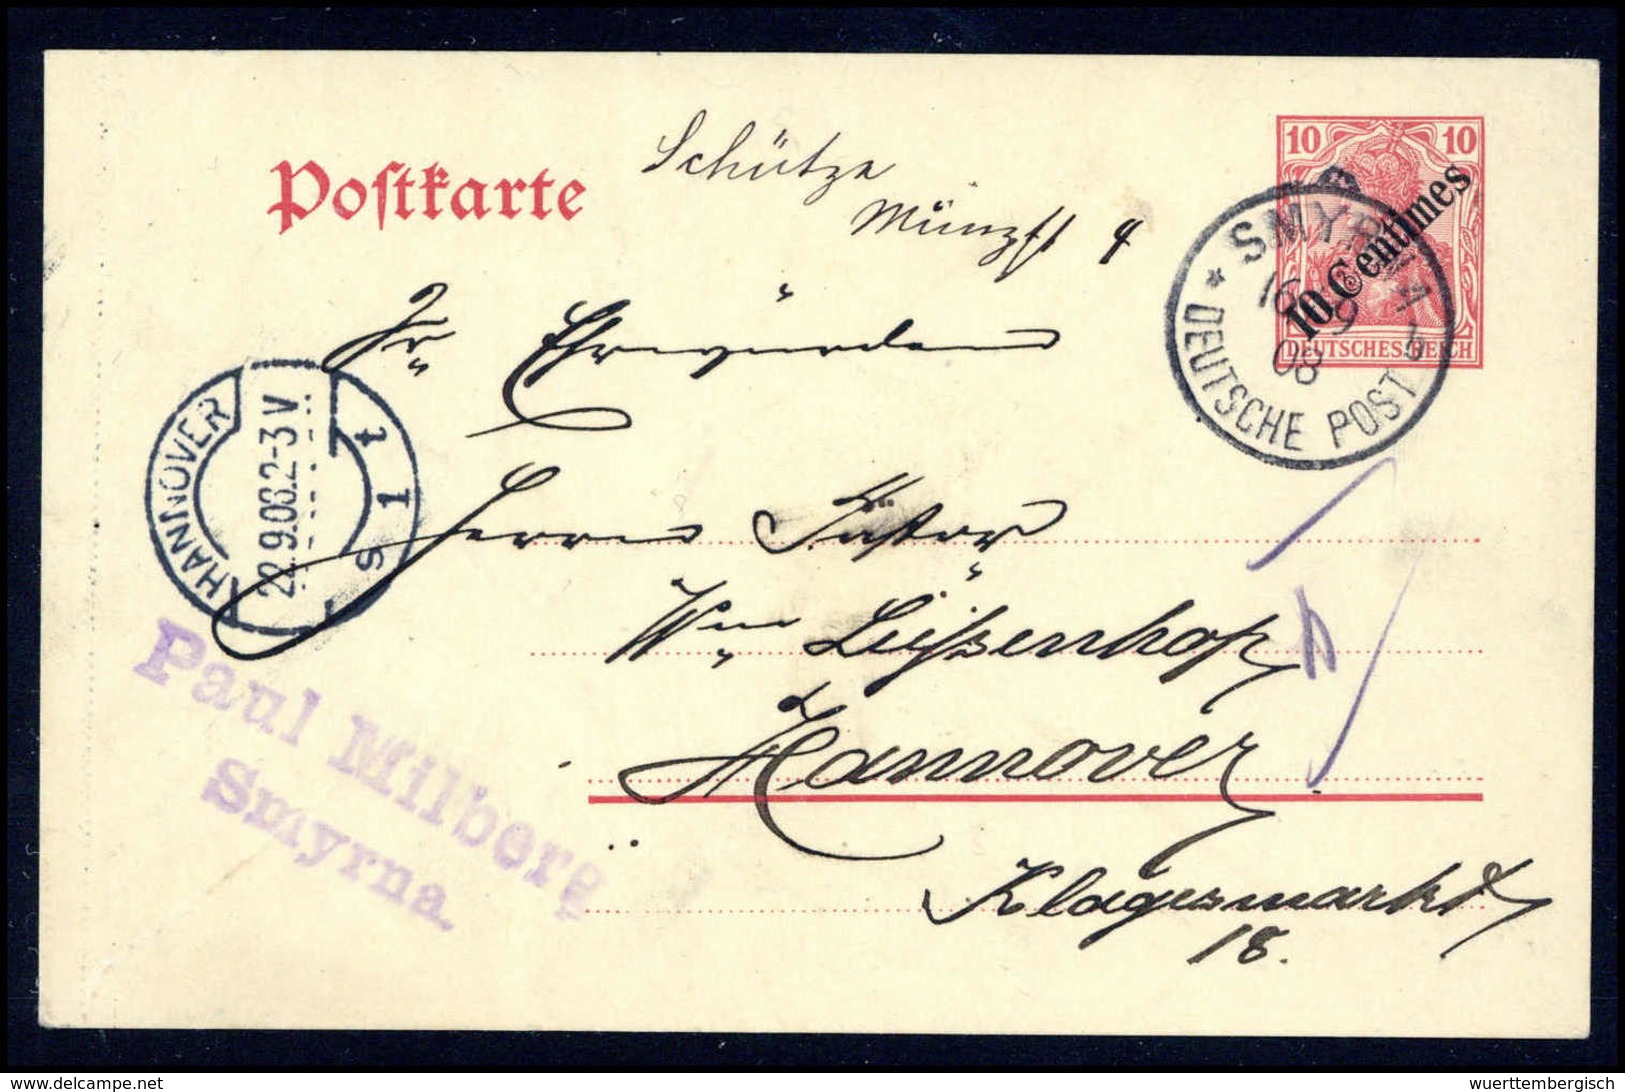 Postkarte
Schütze
Münzstr 4
10 10
10 Centimes
DEUTSCHES REICH
* SMYRNA *
16 9
08
DEUTSCHE POST
Sr Ehrwürden
Herrn Pastor
Wm Leissenhop
Hannover
Klagesmarkt
18.
HANNOVER
22.9.08.2-3V
s 1 t
Paul Milberg
Smyrna.
delcampe.net
wuerttembergisch